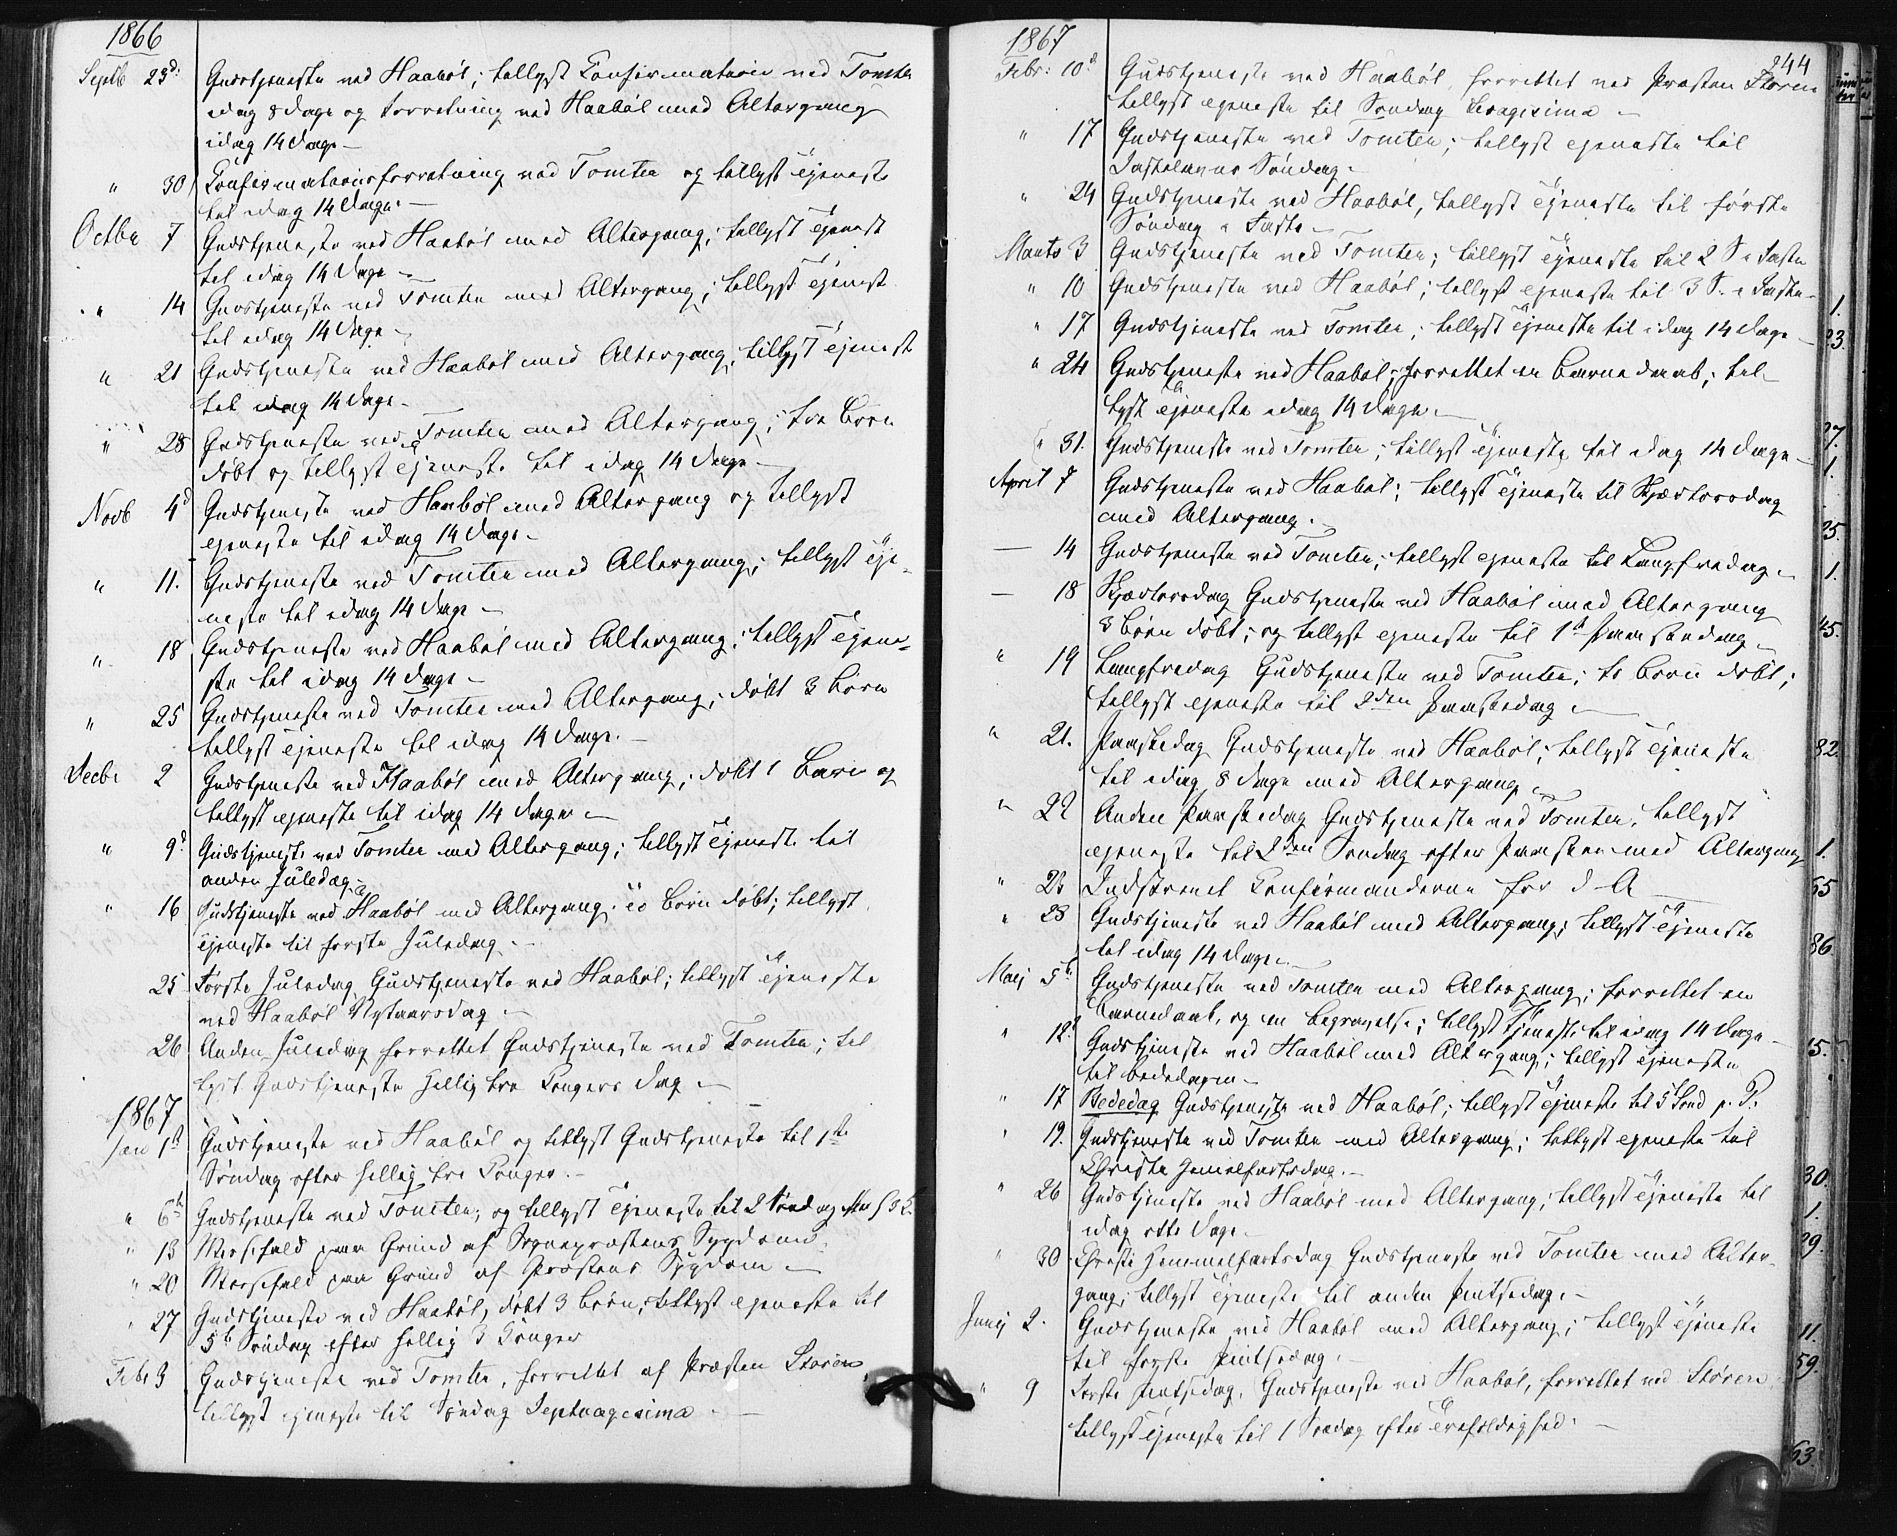 1866
Septb 23d: Gudstjeneste ved Haabøl; tillyst Confirmation ved Tomter
idag 8 Dage og Forretning ved Haabøl med Altergang
idag 14 Dage —
" 30 Confirmationsforretning ved Tomter og tillyst Tjeneste
til idag 14 Dage. —
Octbr 7 Gudstjeneste ved Haabøl med Altergang; tillyst Tjenest
til idag 14 Dage —
" 14 Gudstjeneste ved Tomter med Altergang; tillyst Tjenest
til idag 14 Dage —
" 21 Gudstjeneste ved Haabøl med Altergang; tillyst Tjeneste
til idag 14 Dage —
" 28 Gudstjeneste ved Tomter med Altergang; tre Børn
døbt og tillyst Tjeneste til idag 14 Dage —
Novb 4d Gudstjeneste ved Haabøl med Altergang og tillyst
Tjeneste til idag 14 Dage —
" 11. Gudstjeneste ved Tomter med Altergang; tillyst Tje-
neste til idag 14 Dage —
" 18 Gudstjeneste ved Haabøl med Altergang; tillyst Tjene-
ste til idag 14 Dage —
" 25 Gudstjeneste ved Tomter med Altergang; døbt 3 Børn
tillyst Tjeneste til idag 14 Dage. —
Decbr 2 Gudstjeneste ved Haabøl med Altergang; døbt 1 Barn og
tillyst Tjeneste til idag 14 Dage —
" 9d Gudstjeneste ved Tomter med Altergang; tillyst Tjeneste til
anden Juledag —
" 16 Gudstjeneste ved Haabøl med Altergang; to Børn døbt; tillyst
Tjeneste til første Juledag —
25 Første Juledag Gudstjeneste ved Haabøl; tillyst Tjeneste
ved Haabøl Nytaarsdag —
26 Anden Juledag forrettet Gudstjeneste ved Tomter; til
lyst Gudstjeneste Hellig tre Kongers Dag —
1867
Jan 1st Gudstjeneste ved Haabøl og tillyst Gudstjeneste til 1ste
Søndag efter Hellig tre Konger. —
" 6te Gudstjeneste ved Tomter; og tillyst Tjeneste til 2 Søndag
" 13 Messefald paa Grund af Sognepræstens Sygdom
" 20 Messefald paa Grund af Præstens Sygdom —
" 27 Gudstjeneste ved Haabøl, døbt 3 Børn, tillyst Tjeneste til
5te Søndag efter Hellig 3 Konger
Febr 3 Gudstjeneste ved Tomter, forrettet af Præsten Støren
tillyst Tjeneste til Søndag Septuagesima —
1867
244
Febr: 10d Gudstjeneste ved Haabøl, forrettet ved Præsten Støren
tillyst Tjeneste til Søndag Sexagesima —
" 17 Gudstjeneste ved Tomter; tillyst Tjeneste til
Fastelavns Søndag —
" 24 Gudstjeneste ved Haabøl, tillyst Tjeneste til første
Søndag i Faste —
Marts 3 Gudstjeneste ved Tomter; tillyst Tjeneste til 2 S i Faste
" 10 Gudstjeneste ved Haabøl; tillyst Tjeneste til 3 S. i Faste —
" 17 Gudstjeneste ved Tomter; tillyst Tjeneste til idag 14 Dage —
" 24 Gudstjeneste ved Haabøl; forrettet en Barnedaab; til-
lyst Tjeneste idag 14 Dage —
" 31. Gudstjeneste ved Tomter; tillyst Tjeneste til idag 14 Dage —
April 7 Gudstjeneste ved Haabøl; tillyst Tjeneste til Skjærtorsdag
med Altergang. —
— 14 Gudstjeneste ved Tomter; tillyst Tjeneste til Langfredag —
— 18 Skjærtorsdag Gudstjeneste ved Haabøl med Altergang
3 Børn døbt; og tillyst Tjeneste til 1st Paaskedag —
" 19 Langfredag Gudstjeneste ved Tomter; to Børn døbt;
tillyst Tjeneste til 2den Paaskedag —
" 21. Paaskedag Gudstjeneste ved Haabøl; tillyst Tjeneste
til idag 8 Dage med Altergang —
" 22 Anden Paaskedag Gudstjeneste ved Tomter, tillyst
Tjeneste til 2den Søndag efter Paasken med Altergang
" 23 Indskrevet Confirmanderne for d A —
" 28 Gudstjeneste ved Haabøl med Altergang; tillyst Tjeneste
til idag 14 Dage —
Maij 5te Gudstjeneste ved Tomter med Altergang; forrettet en
Barnedaab, og en Begravelse; tillyst Tjeneste til idag 14 Dage —
" 12t Gudstjeneste ved Haabøl med Altergang; tillyst Tjeneste
til Bededagen —
" 17 Bededag Gudstjeneste ved Haabøl; tillyst Tjeneste til 5 Sønd p. P.
" 19. Gudstjeneste ved Tomter med Altergang; tillyst Tjeneste til
Christi Himmelfartsdag. —
" 26 Gudstjeneste ved Haabøl med Altergang; tillyst Tjeneste til
idag otte Dage —
" 30 Christi Himmelfartsdag Gudstjeneste ved Tomter med Alter-
gang; tillyst Tjeneste til anden Pintsedag —
Junij 2. Gudstjeneste ved Haabøl med Altergang; tillyst Tjeneste
til første Pintsedag. —
" 9 Første Pintsedag, Gudstjeneste ved Haabøl, forrettet ved Støren
tillyst Tjeneste til 1 Søndag efter Trefoldighed. —